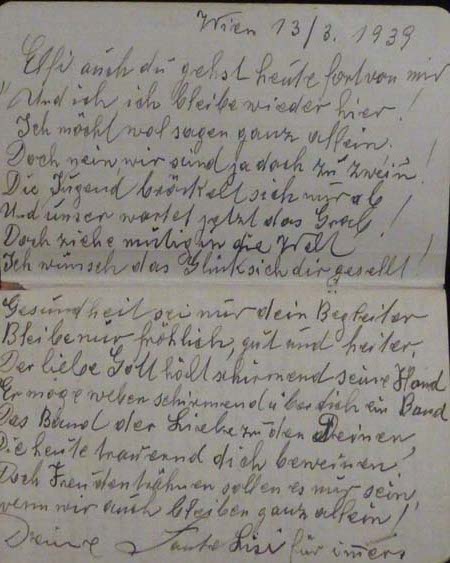 Wien 13/3. 1939
Elfi auch du gehst heute fort von mir
Und ich ich bleibe wieder hier!
Ich möcht wol sagen ganz allein.
Doch nein, wir sünd ja doch zu zwein!
Die Jugend bröckelt sich nur ab
Und unser wartet jetzt das Grab!
Doch ziehe mutig in die Welt
Ich wünsch das Glück sich dir gesellt!
Gesundheit sei nur dein Begleiter
Bleibe nur fröhlich, gut und heiter.
Der liebe Gott halt schirmend seine Hand
Er möge weben schirmend über dich ein Band
Das Band der Liebe zu den Deinen,
Die heute trauernd dich beweinen,
Doch Freudenträhnen sollen es nur sein,
wenn wir auch bleiben ganz allein!
Deine Tante Lisi für immer